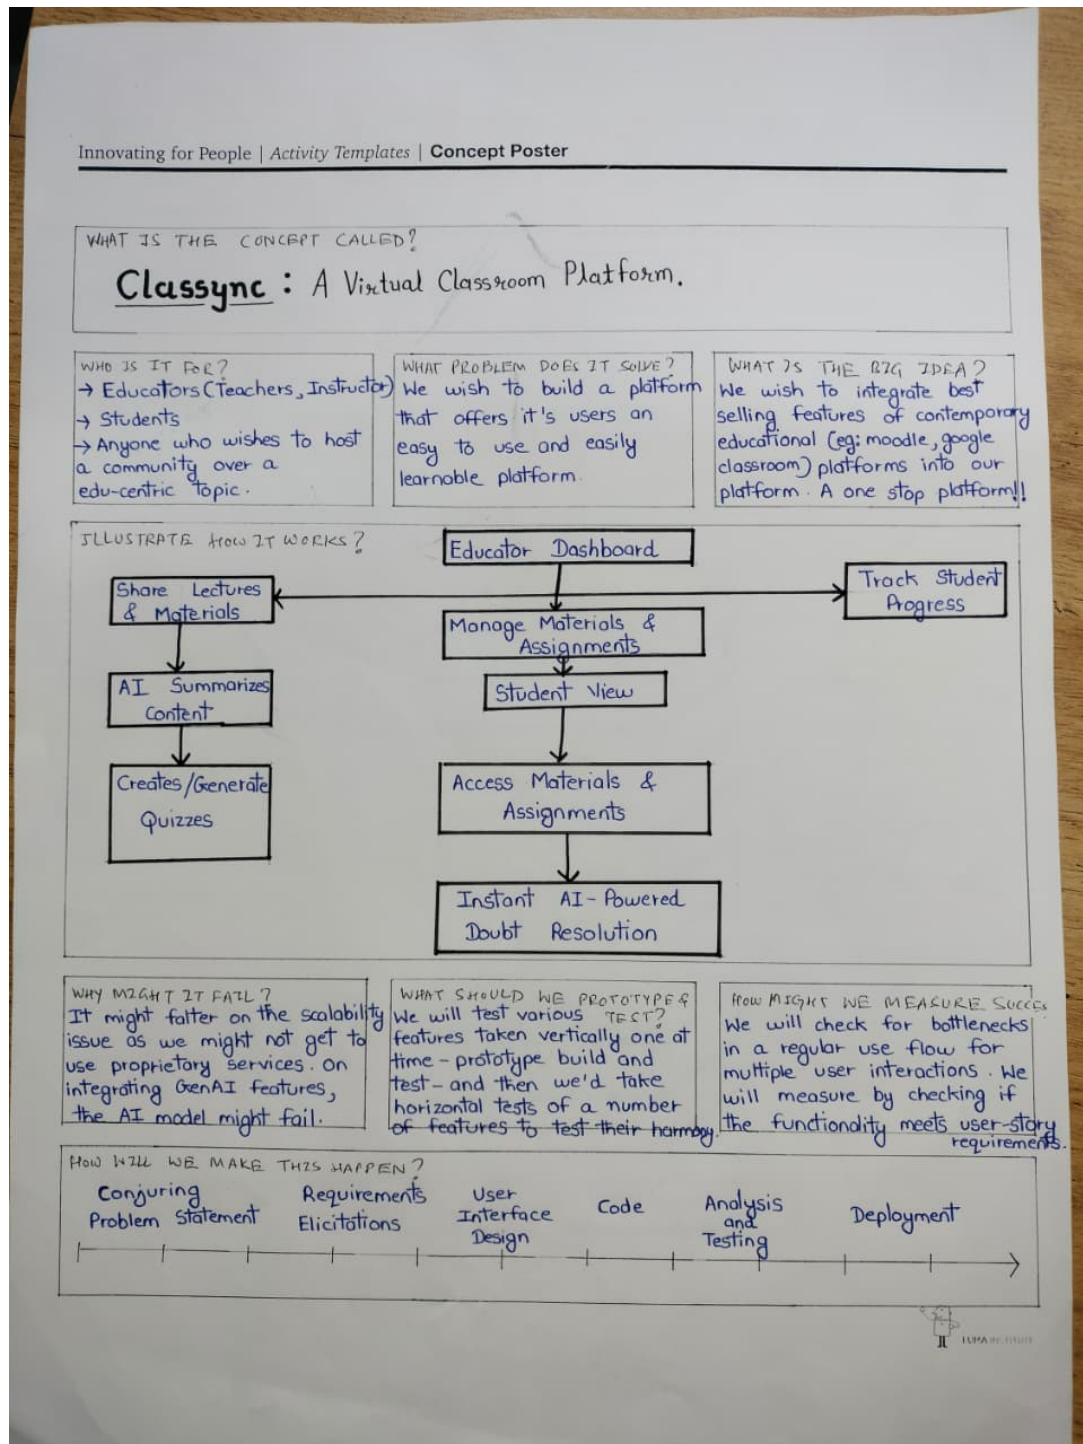 Innovating for People | Activity Templates | Concept Poster
WHAT IS THE CONCEPT CALLED?
Classync : A Virtual Classroom Platform.
WHO IS IT FOR?
→ Educators (Teachers, Instructor)
→ Students
→ Anyone who wishes to host
a community over a
edu-centric topic.
WHAT PROBLEM DOES IT SOLVE?
We wish to build a platform
that offers it's users an
easy to use and easily
learnable platform.
WHAT IS THE BIG IDEA?
We wish to integrate best
selling features of contemporary
educational (eg: moodle, google
classroom) platforms into our
platform. A one stop platform!!
ILLUSTRATE HOW IT WORKS?
Educator Dashboard
Share Lectures
& Materials
Track Student
Progress
Manage Materials &
Assignments
AI Summarizes
Content
Student View
Creates/Generate
Quizzes
Access Materials &
Assignments
Instant AI-Powered
Doubt Resolution
WHY MIGHT IT FAIL?
It might falter on the scalability
issue as we might not get to
use proprietary services. On
integrating GenAI features,
the AI model might fail.
WHAT SHOULD WE PROTOTYPE &
TEST?
We will test various
features taken vertically one at
time - prototype build and
test - and then we'd take
horizontal tests of a number
of features to test their harmony.
HOW MIGHT WE MEASURE SUCCES
We will check for bottlenecks
in a regular use flow for
multiple user interactions. We
will measure by checking if
the functionality meets user-story
requirements.
HOW WILL WE MAKE THIS HAPPEN?
Conjuring
Problem Statement
Requirements
Elicitations
User
Interface
Design
Code
Analysis
and
Testing
Deployment
LUMA INSTITUTE